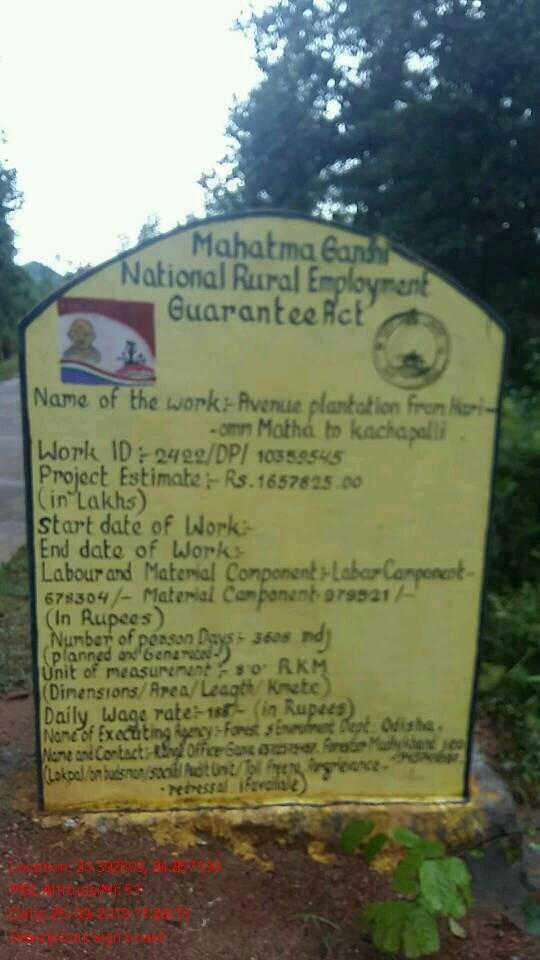 Mahatma Gandhi
National Rural Employment
Guarantee Act
Name of the work:- Avenue plantation from Hari-
-omn Matha to kachapalli
Work ID :- 2422/DP/ 10359545
Project Estimate:- Rs.1657825.00
(in Lakhs)
Start date of Work:-
End date of Work:-
Labour and Material Component:- Labar Camponent-
678304/- Material Camponent-979521/-
(In Rupees)
Number of peason Days:- 3608 mdj
(planned and Generated-)
Unit of measurement :- 8.0 RKM
(Dimensions/Area/Leagth/Kmetc)
Daily Wage rate:-188/- (in Rupees)
Name of Executing Agency:- Forest & Enviroment Dept. Odisha.
Name and Contact:- Range Officer Forester
(Lokpal/ombudsman/social Audit Unit/Toll
-redressal
Location:
MSL Altitude(M):
Date: 25-09-2019
Description: sign bowrd